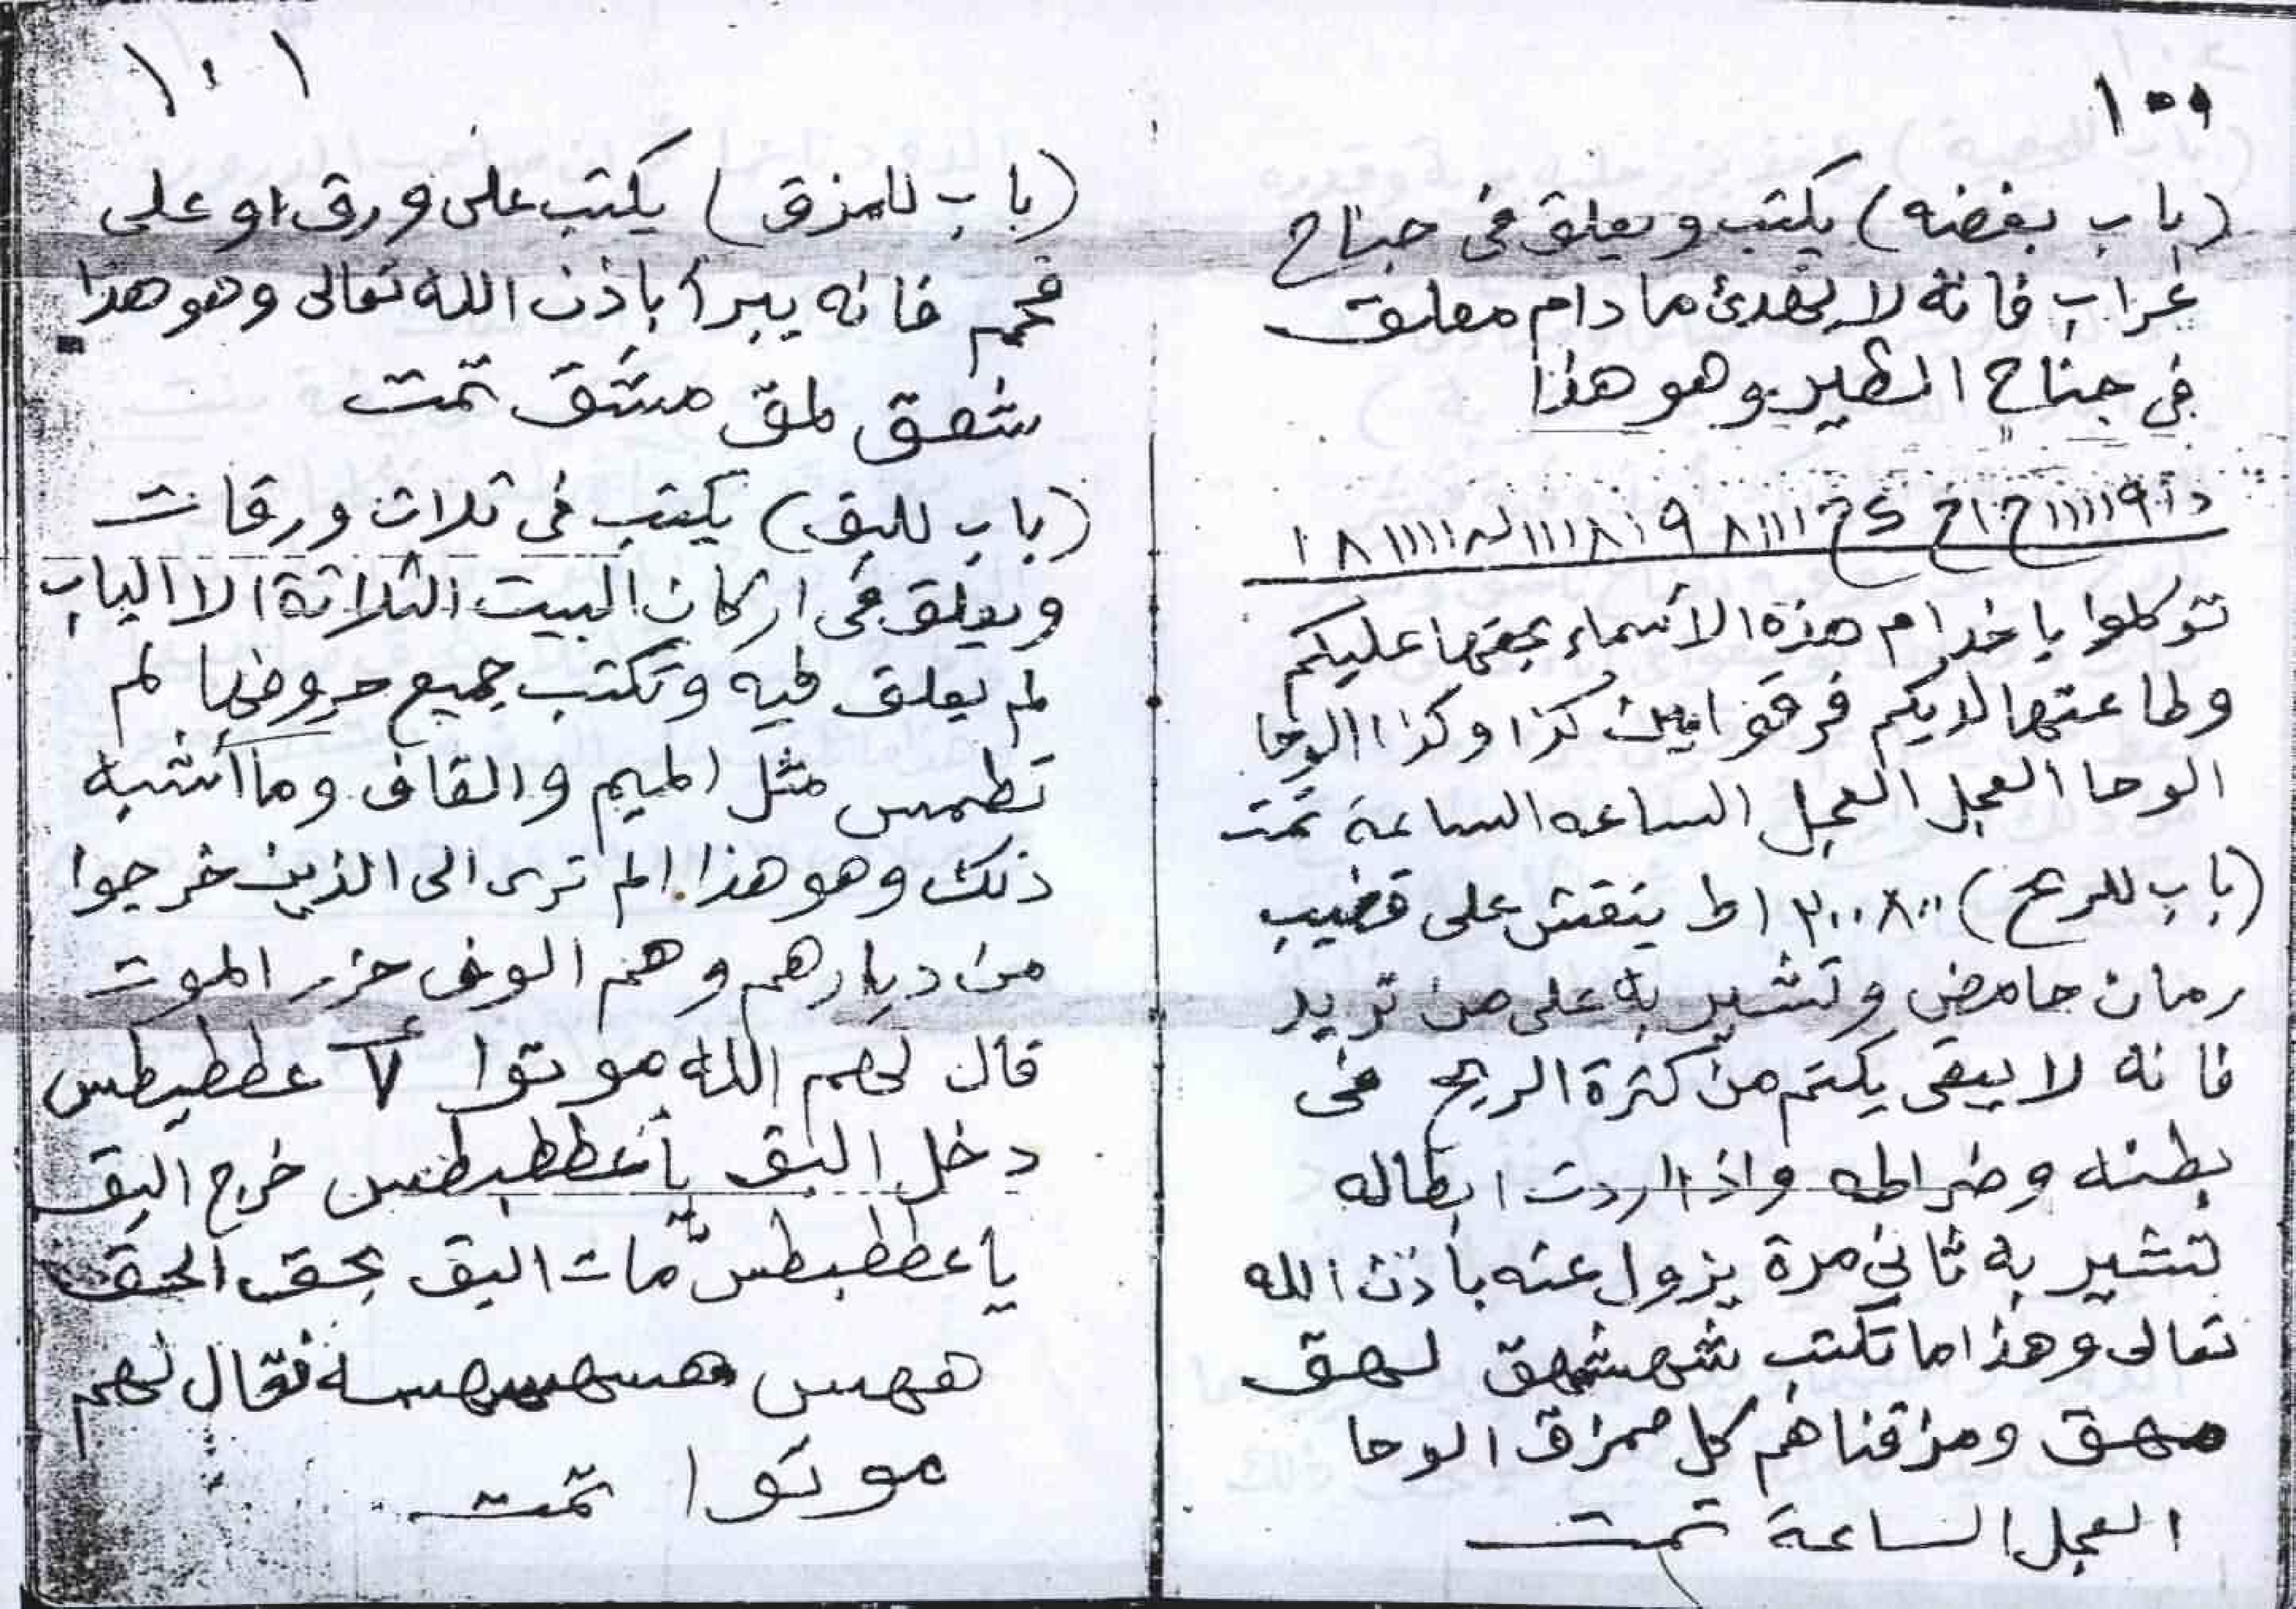 ١٠٠
(باب بغضه) يكتب ويعلق فى جناح
غراب فانة لا يهدئ مادام معلق
في جناح الطير وهو هذا
توكلوا يا خدام هذة الأسماء بحقها عليكم
وطاعتها لديكم فرقوا بين كذا وكذا الوحا
الوحا العجل العجل الساعه الساعة تمت
(باب للريح) ٣٠٠٨٠٠ اط ينقش على قضيب
رمان حامض وتشير به على من تريد
فانه لا يبقى يكتم من كثرة الريح فى
بطنه وضراطه واذا اردت ابطاله
تشير به ثاني مرة يزول عنه بأذن الله
تعالى وهذا ما تكتب شهشهق لهق
مهق ومزقناهم كل ممزق الوحا
العجل الساعة تمت
١٠١
(باب للمزق) يكتب على ورق او على
فحم فانه يبرأ باذن الله تعالى وهو هذا
شقق لمق مشق تمت
(باب للبق) يكتب فى ثلاث ورقات
ويعلق في اركان البيت الثلاثة الا الباب
لم يعلق فيه وتكتب جميع حروفها لم
تطمس مثل الميم والقاف وما أشبه
ذلك وهو هذا الم ترى الى الذين خرجوا
من ديارهم وهم الوف حزر الموت
قال لهم الله موتوا عططبطس
دخل البق يا عططبطس خرج البق
يا عططبطس مات البق بحق الحق
ههس فقال لهم
موتوا تمت